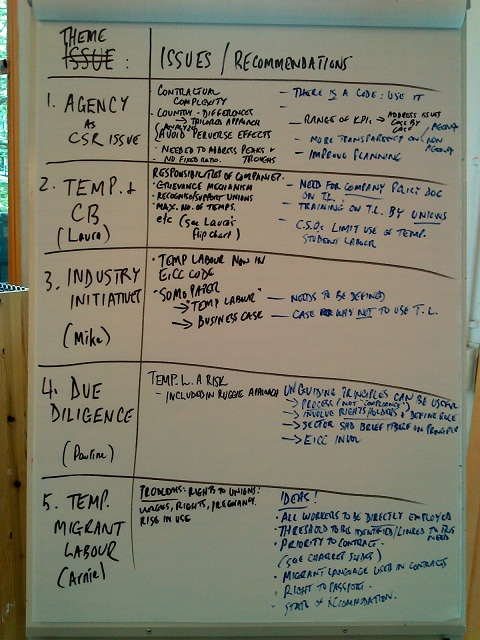 THEME
ISSUE :
ISSUES / RECOMMENDATIONS
1. AGENCY
AS
CSR ISSUE
CONTRACTUAL
COMPLEXITY
• COUNTRY - DIFFERENCES
→ TAILORED APPROACH
AVOID PERVERSE EFFECTS
• NEEDED TO ADDRESS PEAKS +
TROUGHS
NO FIXED RATIO.
– THERE IS A CODE: USE IT
–
– RANGE OF KPI. → ADDRESS ISSUES
CASE BY
CASE
– MORE TRANSPARENCY ON AGENCY /
NON
AGENCY
– IMPROVE PLANNING
2. TEMP. +
CB
(Laura)
RESPONSIBILITIES OF COMPANIES:
• GRIEVANCE MECHANISM
• RECOGNISE/SUPPORT UNIONS
• MAX. NO. OF TEMPS.
etc (see Laura's
flip chart)
– NEED FOR COMPANY POLICY DOC
ON T.L.
– TRAINING ON T.L. BY UNIONS
– C.S.O: LIMIT USE OF TEMP.
STUDENT LABOUR
3. INDUSTRY
INITIATIVES
(Mike)
• TEMP LABOUR NOW IN
EICC CODE
• SOMO PAPER
→ "TEMP LABOUR"
→ BUSINESS CASE
– NEEDS TO BE DEFINED
– CASE FOR WHY NOT TO USE T.L.
4. DUE
DILIGENCE
(Pauline)
TEMP. L. A RISK
– INCLUDED IN RUGGIE APPROACH
UN GUIDING PRINCIPLES CAN BE USEFUL
→ PROCESS (NOT "COMPLIANCE")
→ INVOLVE RIGHTS HOLDERS + DEFINE ROLE
→ SECTOR BRIEF ON PRINCIPLE
→ EICC INVOL
5. TEMP.
MIGRANT
LABOUR
(Arnie)
PROBLEMS: RIGHTS TO UNIONS:
WAGES, RIGHTS, PREGNANCY.
RISE IN USE
IDEAS!
• ALL WORKERS TO BE DIRECTLY EMPLOYED
• THRESHOLD TO BE IDENTIFIED/LINKED TO
NEED
• PRIORITY TO CONTRACT.
(SEE CHARTER)
• MIGRANT LANGUAGE USED IN CONTRACTS
• RIGHT TO PASSPORT.
• STATE OF ACCOMMODATION.